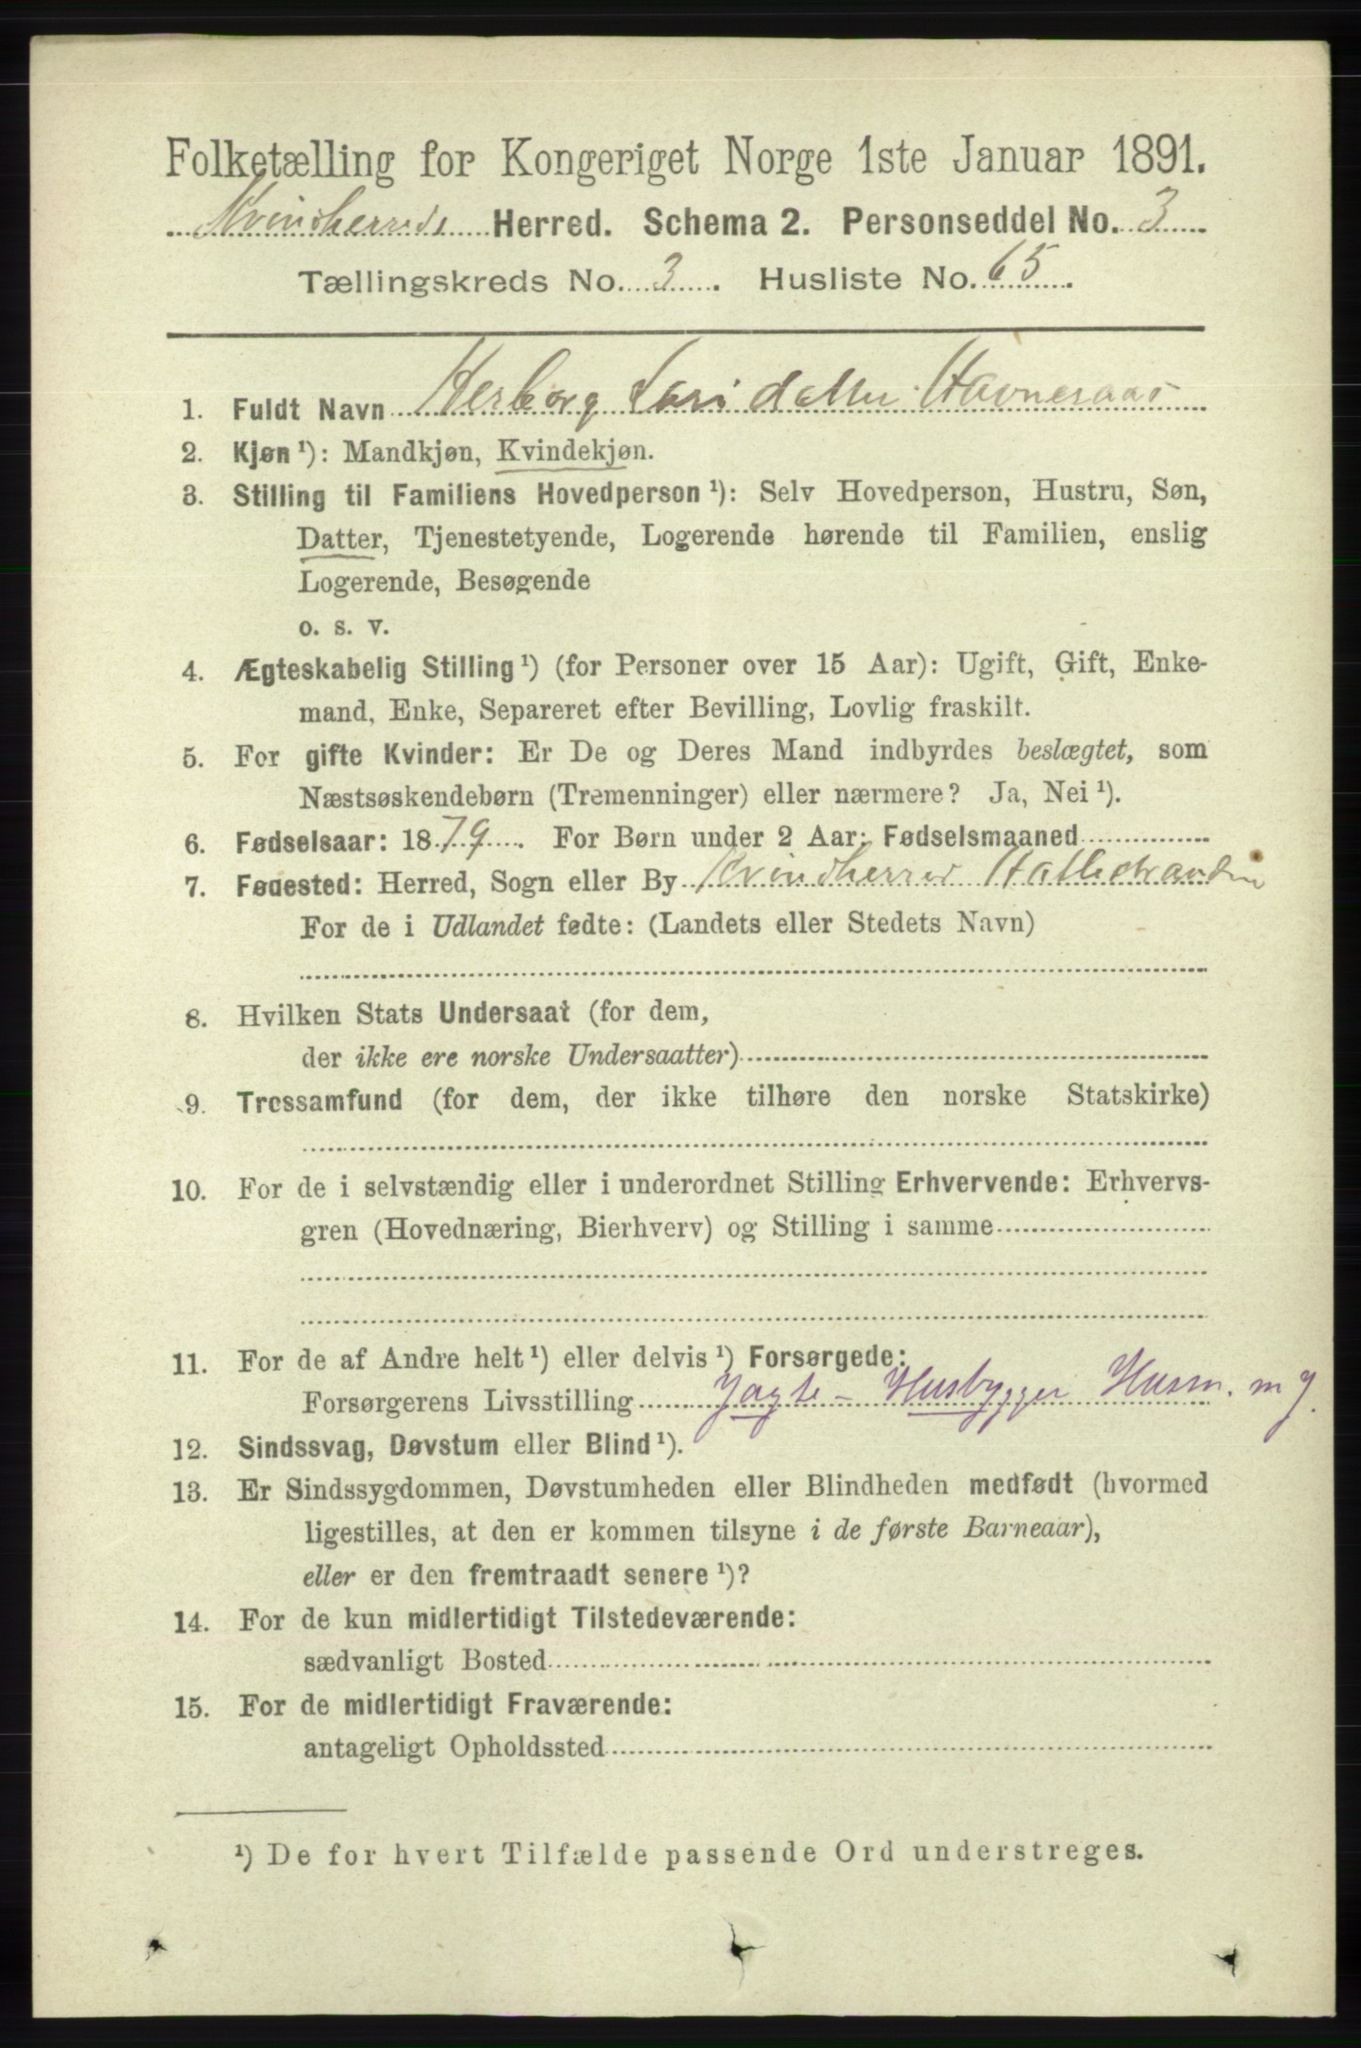 Folketælling for Kongeriget Norge 1ste Januar 1891.
Kvindherreds Herred. Schema 2. Personseddel No. 3
Tællingskreds No. 3. Husliste No. 65.
1. Fuldt Navn Herborg Larsdatter Havneraas
2. Kjøn ¹): Mandkjøn, Kvindekjøn.
3. Stilling til Familiens Hovedperson ¹): Selv Hovedperson, Hustru, Søn,
Datter, Tjenestetyende, Logerende hørende til Familien, enslig
Logerende, Besøgende
o. s. v.
4. Ægteskabelig Stilling ¹) (for Personer over 15 Aar): Ugift, Gift, Enke-
mand, Enke, Separeret efter Bevilling, Lovlig fraskilt.
5. For gifte Kvinder: Er De og Deres Mand indbyrdes beslægtet, som
Næstsøskendebørn (Tremenninger) eller nærmere? Ja, Nei ¹).
6. Fødselsaar: 1879. For Børn under 2 Aar: Fødselsmaaned
7. Fødested: Herred, Sogn eller By Kvindherred
For de i Udlandet fødte: (Landets eller Stedets Navn)
8. Hvilken Stats Undersaat (for dem,
der ikke ere norske Undersaatter)
9. Trossamfund (for dem, der ikke tilhøre den norske Statskirke)
10. For de i selvstændig eller i underordnet Stilling Erhvervende: Erhvervs-
gren (Hovednæring, Bierhverv) og Stilling i samme
11. For de af Andre helt ¹) eller delvis ¹) Forsørgede:
Forsørgerens Livsstilling Jagte- Husbygger Husm. m J.
12. Sindssvag, Døvstum eller Blind ¹).
13. Er Sindssygdommen, Døvstumheden eller Blindheden medfødt (hvormed
ligestilles, at den er kommen tilsyne i de første Barneaar),
eller er den fremtraadt senere ¹)?
14. For de kun midlertidigt Tilstedeværende:
sædvanligt Bosted
15. For de midlertidigt Fraværende:
antageligt Opholdssted
¹) De for hvert Tilfælde passende Ord understreges.